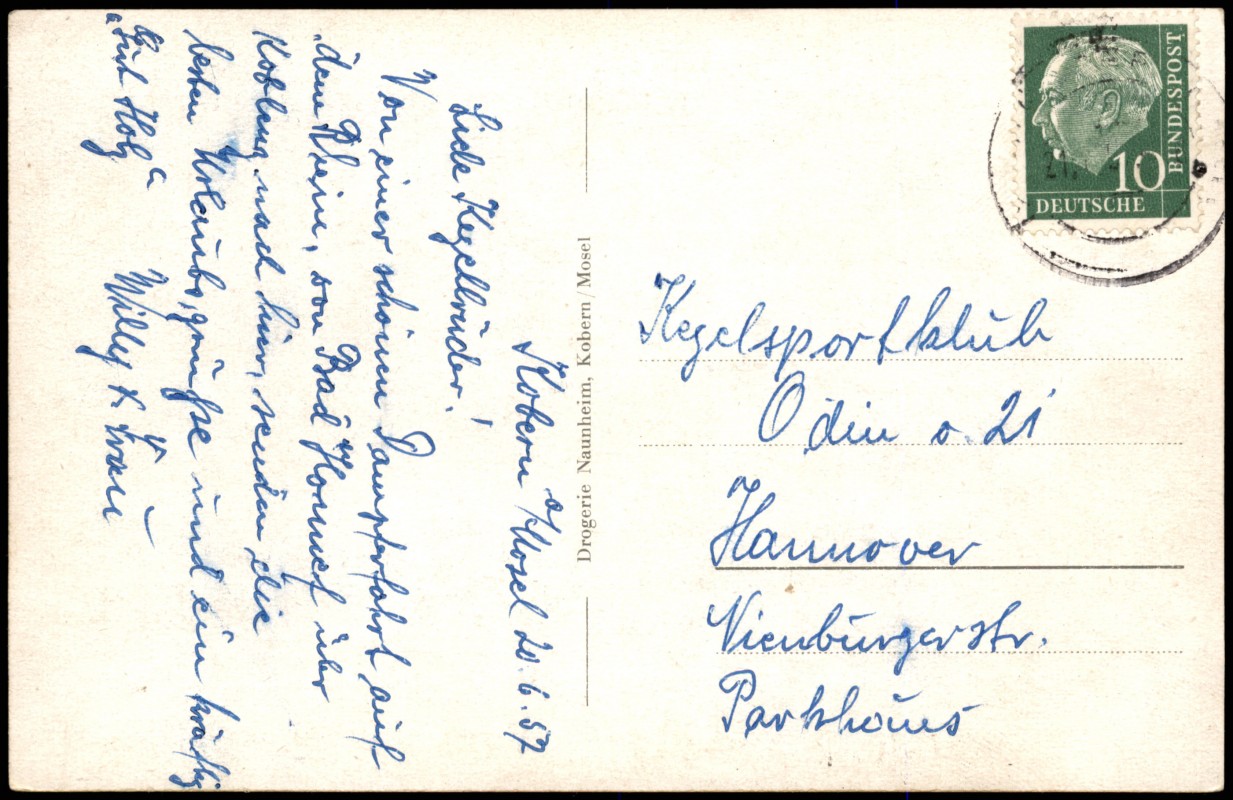 Kobern a/Mosel 20.6.57
Liebe Kegelbrüder!
Von einer schönen Dampferfahrt auf
dem Rhein, von Bad Honnef über
Koblenz nach hier, senden die
besten Urlaubsgrüße und ein kräftig
"Gut Holz"
Willy u. Frau
Drogerie Naunheim, Kobern/Mosel
10
DEUTSCHE
BUNDESPOST
Kegelsportklub
Odin v. 21
Hannover
Nienburgerstr.
Parkhaus